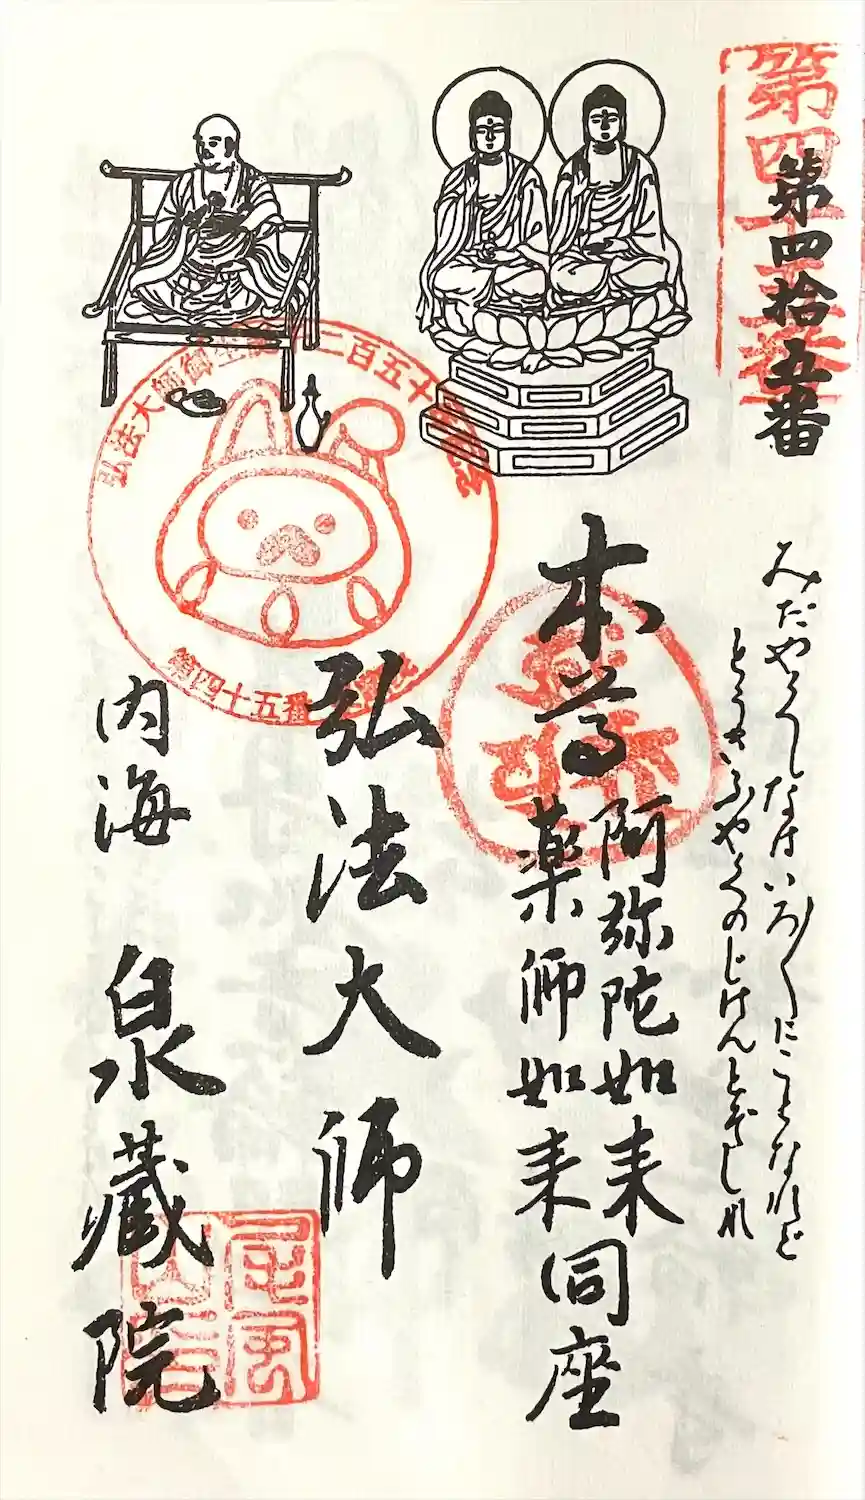 第四拾五番
みだやくしなはいろ〱にことなれど
とうさいふやくのじけんとぞしれ
本尊
阿弥陀如来
薬師如来
同座
弘法大師
内海
泉蔵院
弘法大師御生誕千二百五十年記念
第四十五番
第四十五番